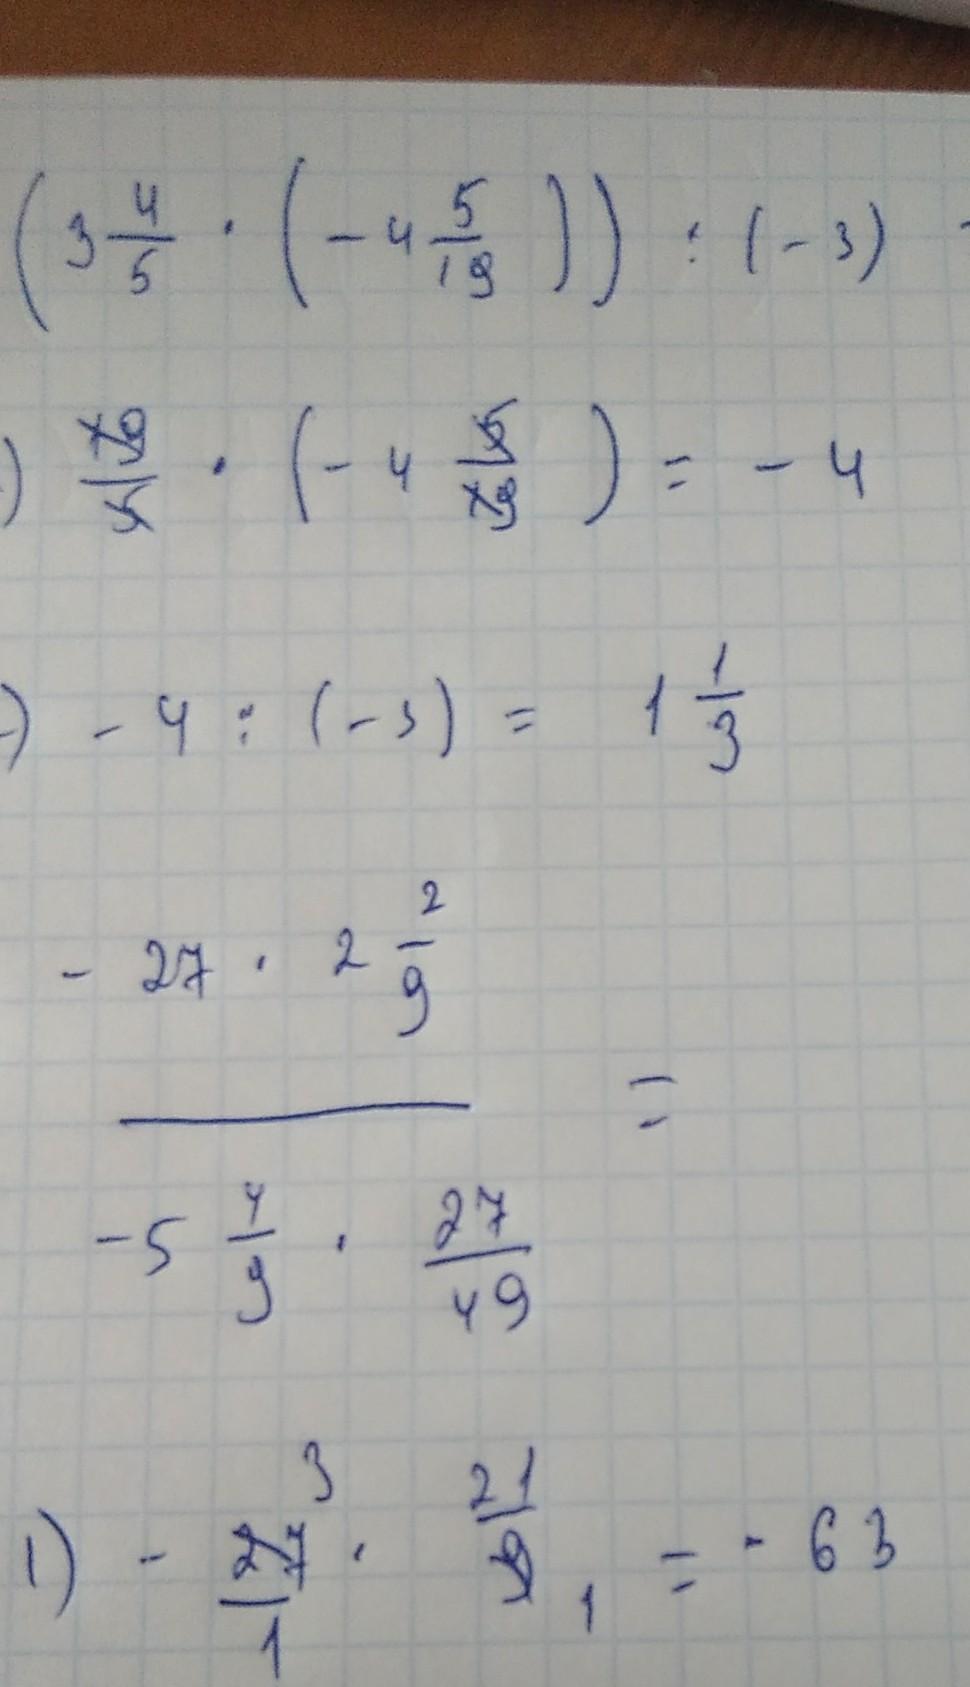 (3 4/5 · (-4 5/19)) : (-3)
) 19/5 · (-4 5/19) = -4
) -4 : (-3) = 1 1/3
-27 · 2 2/9
=
-5 4/9 · 27/49
1) - 27/1 3 · 21/9 1 = -63